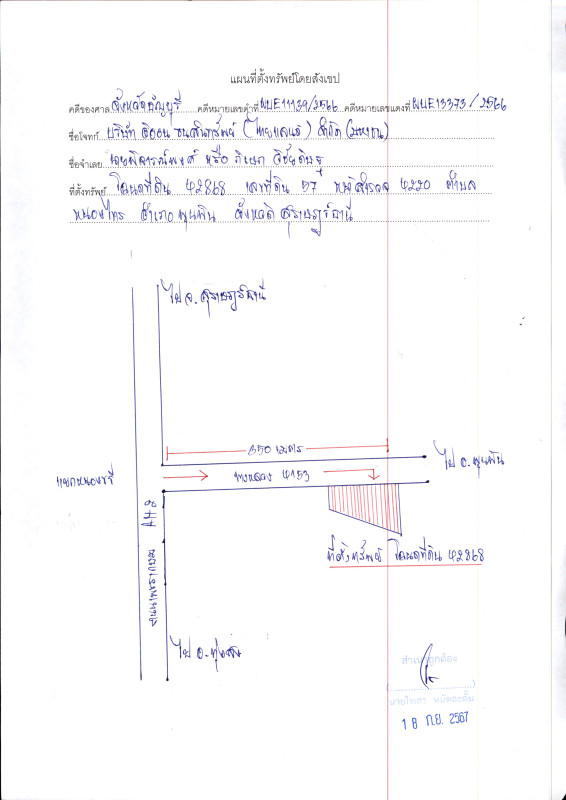 แผนที่ตั้งทรัพย์โดยสังเขป
คดีของศาล จังหวัดธัญบุรี คดีหมายเลขดำที่ ผบE11139/2566 คดีหมายเลขแดงที่ ผบE13373/2566
ชื่อโจทก์ บริษัท อิออน ธนสินทรัพย์ (ไทยแลนด์) จำกัด (มหาชน)
ชื่อจำเลย หรือ
ที่ตั้งทรัพย์ โฉนดที่ดิน 42868 เลขที่ดิน 57 หน้าสำรวจ 4220 ตำบล
หนองไทร อำเภอพุนพิน จังหวัด สุราษฎร์ธานี
ไป จ. สุราษฎร์ธานี
350 เมตร
ไป อ. พุนพิน
แยกหนองขรี
ทางหลวง 4153
ที่ตั้งทรัพย์ โฉนดที่ดิน 42868
ไป อ. ทุ่งสง
สำเนาถูกต้อง
18 ก.ย. 2567